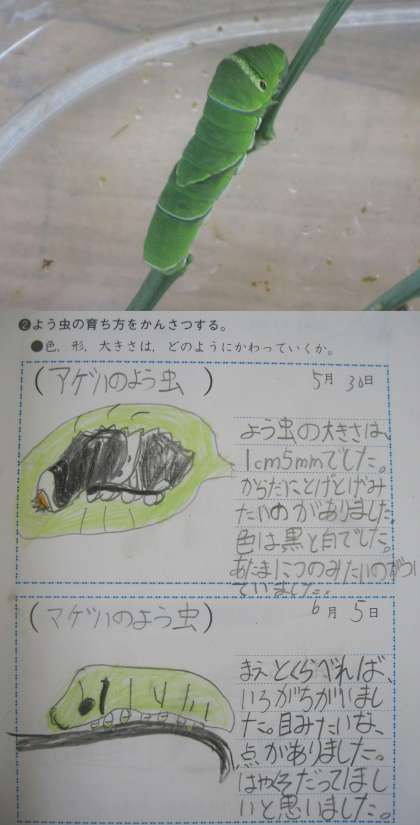 ❷よう虫の育ち方をかんさつする。
●色，形，大きさは，どのようにかわっていくか。
(アゲハのよう虫)
5月30日
よう虫の大きさは、
1cm5mmでした。
からだにとげとげみ
たいのがありました。
色は黒と白でした。
あたまにつのみたいのがつい
ていました。
(アゲハのよう虫)
6月5日
まえとくらべれば、
いろがちがいまし
た。目みたいな、
点がありました。
はやくそだってほし
いと思いました。